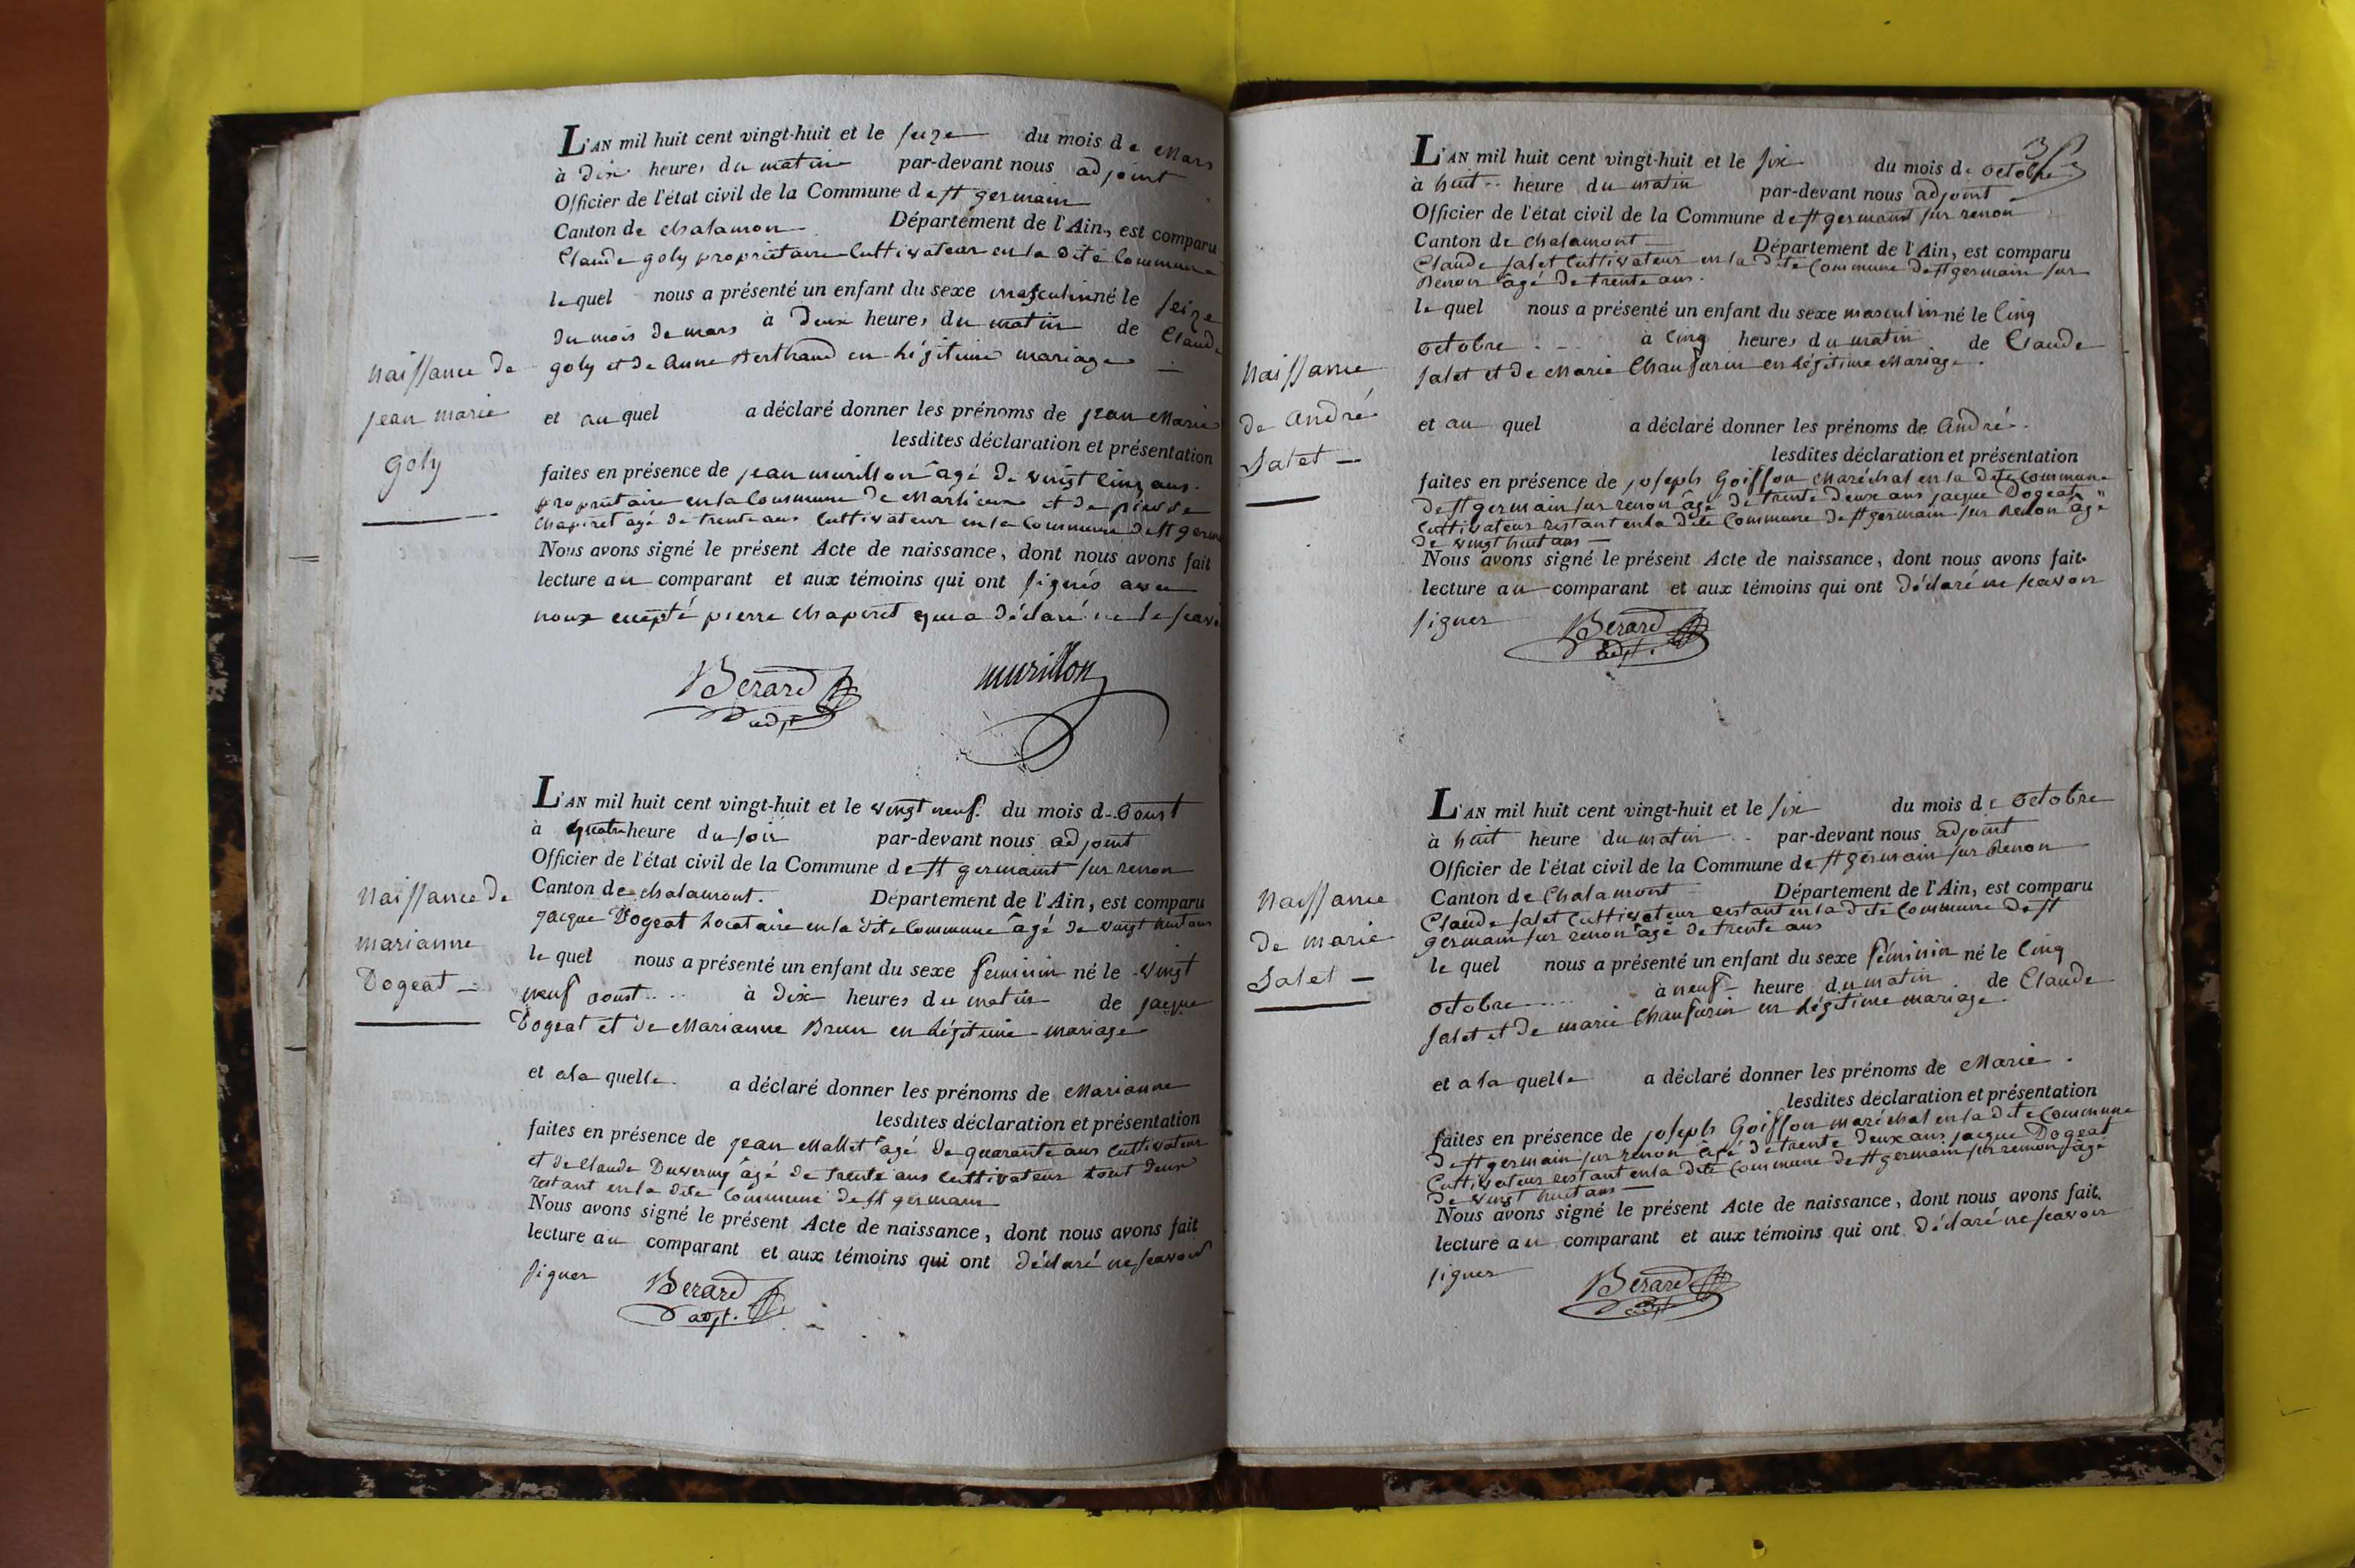 L'AN mil huit cent vingt-huit et le seize du mois de Mars
à dix heures du matin par-devant nous adjoint
Officier de l'état civil de la Commune de st germain
Canton de chalamon Département de l'Ain, est comparu
Claude goly propriétaire Cultivateur en la dite Commune
le quel nous a présenté un enfant du sexe masculin né le seize
du mois de mars à deux heures du matin de Claude
goly et de Anne Berthaud en légitime mariage
Naissance de
jean marie
goly
et au quel a déclaré donner les prénoms de jean Marie
lesdites déclaration et présentation
faites en présence de jean murillon âgé de vingt cinq ans
propriétaire en la Commune de Marlieux et de pierre
Chapiret agé de trente ans Cultivateur en la Commune de st germ
Nous avons signé le présent Acte de naissance, dont nous avons fait
lecture au comparant et aux témoins qui ont signés avec
nous excepté pierre Chapiret qui a déclaré ne le scavo
Berard murillon
adjt
L'AN mil huit cent vingt-huit et le vingt neuf du mois d Aoust
à quatre heure du soir par-devant nous adjoint
Officier de l'état civil de la Commune de st germaint sur renon
Canton de chalamont. Département de l'Ain, est comparu
jacque Dogeat Locataire en la dite Commune âgé de vingt huit ans
le quel nous a présenté un enfant du sexe féminin né le vingt
neuf aoust à dix heures du matin de jacque
Dogeat et de Marianne Brun en légitime mariage
Naissance de
marianne
Dogeat
et a la quelle a déclaré donner les prénoms de Marianne
lesdites déclaration et présentation
faites en présence de jean Mallet âgé de quarante ans Cultivateur
et de Claude Duverny âgé de trente ans Cultivateur tout deux
restant en la dite Commune de st germain
Nous avons signé le présent Acte de naissance, dont nous avons fait
lecture au comparant et aux témoins qui ont déclaré ne scavoir
signer Berard
adjt.
L'AN mil huit cent vingt-huit et le six du mois de octobre
à huit heure du matin par-devant nous adjoint
Officier de l'état civil de la Commune de st germaint sur renon
Canton de chalamont Département de l'Ain, est comparu
Claude salet Cultivateur en la dite Commune de st germain sur
Renon âgé de trente ans.
le quel nous a présenté un enfant du sexe masculin né le Cinq
octobre à cinq heures du matin de Claude
salet et de Marie Chaufurin en légitime Mariage.
Naissance
de André
Salet
et au quel a déclaré donner les prénoms de André
lesdites déclaration et présentation
faites en présence de joseph Goiffon Maréchal en la dite Commune
de st germain sur renon âgé de trente deux ans jacque Dogeat
Cultivateur restant en la dite Commune de st germain sur Renon âgé
de vingt huit ans
Nous avons signé le présent Acte de naissance, dont nous avons fait
lecture au comparant et aux témoins qui ont déclaré ne scavoir
signer Berard
adjt.
L'AN mil huit cent vingt-huit et le six du mois de octobre
à huit heure du matin par-devant nous adjoint
Officier de l'état civil de la Commune de st germain sur Renon
Canton de Chalamont Département de l'Ain, est comparu
Claude salet Cultivateur restant en la dite Commune de st
germain sur renon âgé de trente ans
le quel nous a présenté un enfant du sexe féminin né le Cinq
octobre à neuf heure du matin de Claude
salet et de marie Chaufurin en légitime mariage.
Naissance
de marie
Salet
et a la quelle a déclaré donner les prénoms de Marie.
lesdites déclaration et présentation
faites en présence de joseph Goiffon maréchal en la dite Commune
de st germain sur renon âgé de trente deux ans, jacque Dogeat
Cultivateur restant en la dite Commune de st germain sur renon âgé
de vingt huit ans
Nous avons signé le présent Acte de naissance, dont nous avons fait
lecture au comparant et aux témoins qui ont déclaré ne scavoir
signer Berard